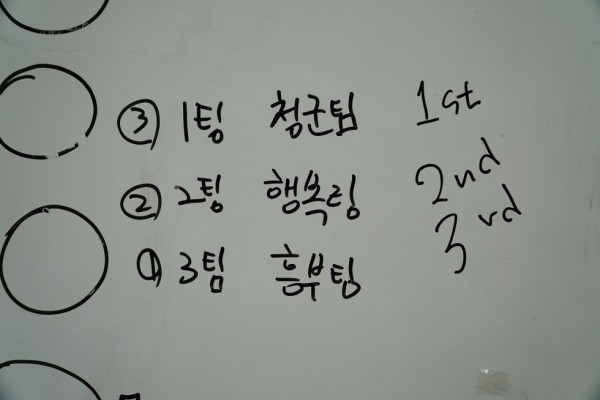 ③ 1팀 청군팀 1st
② 2팀 행복팀 2nd
① 3팀 흥부팀 3rd